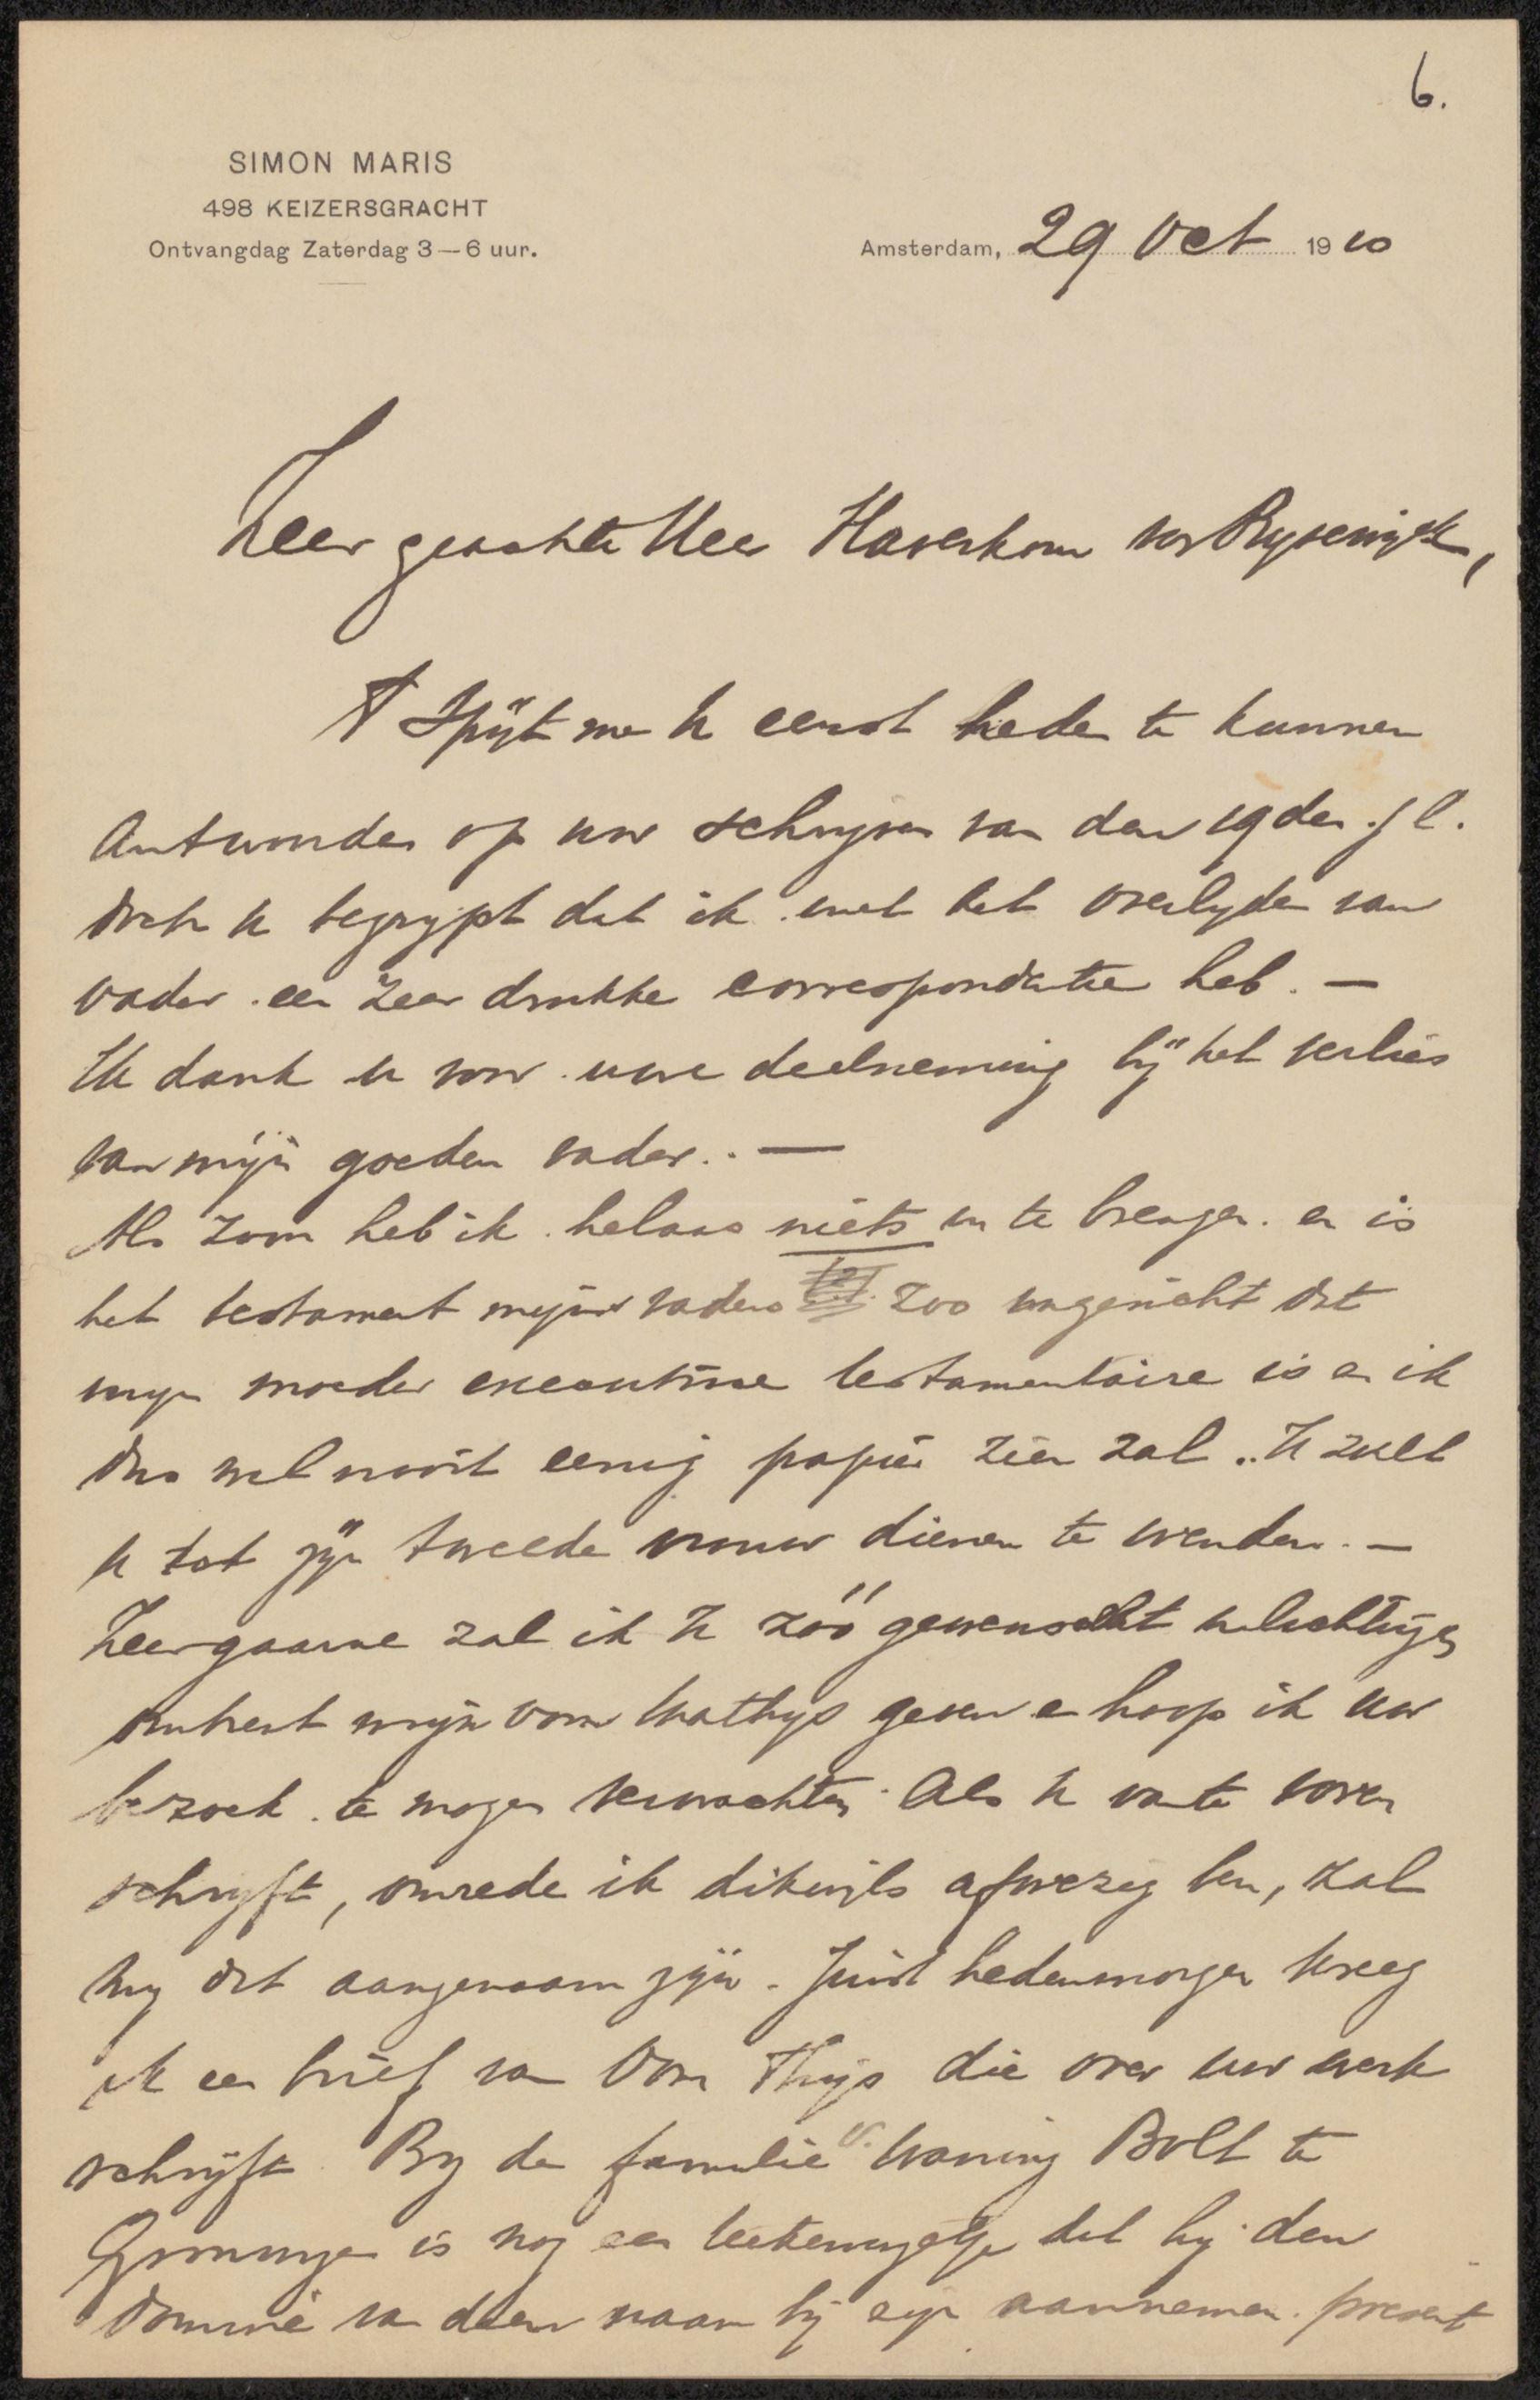 6.
SIMON MARIS
498 KEIZERSGRACHT
Ontvangdag Zaterdag 3—6 uur.
Amsterdam, 29 Oct 1910
Zeer geachte Heer Haverkorn van Rysewyk,
't Spijt me U eerst heden te kunnen
antwoorden op uw schrijven van den 19den j l.
doch U begrypt dat ik met het overlyden van
vader een zeer drukke correspondentie heb. —
Ik dank U voor uwe deelneming bÿ het verlies
van mijn goeden vader. —
Als zoon heb ik helaas niets in te brengen. en is
het testament mijns vaders zoo ingericht dat
mijn moeder executrice testamentaire is en ik
dus wel nooit eenig papier zien zal. U zult
U tot zÿn tweede vrouw dienen te wenden. —
Zeer gaarne zal ik U zóó gewenscht inlichtingen
omtrent mijn oom Mathys geven en hoop ik uw
bezoek te mogen verwachten. Als U van te voren
schryft, omrede ik dikwijls afwezig ben, zal
my dat aangenaam zÿn. Juist hedenmorgen kreeg
ik een brief van Oom Thijs die over uw werk
schrijft. By de familie v. Waning Bolt te
Groningen is nog een teekeningetje dat hij den
dominé van dien naam bij zijn aannemen present